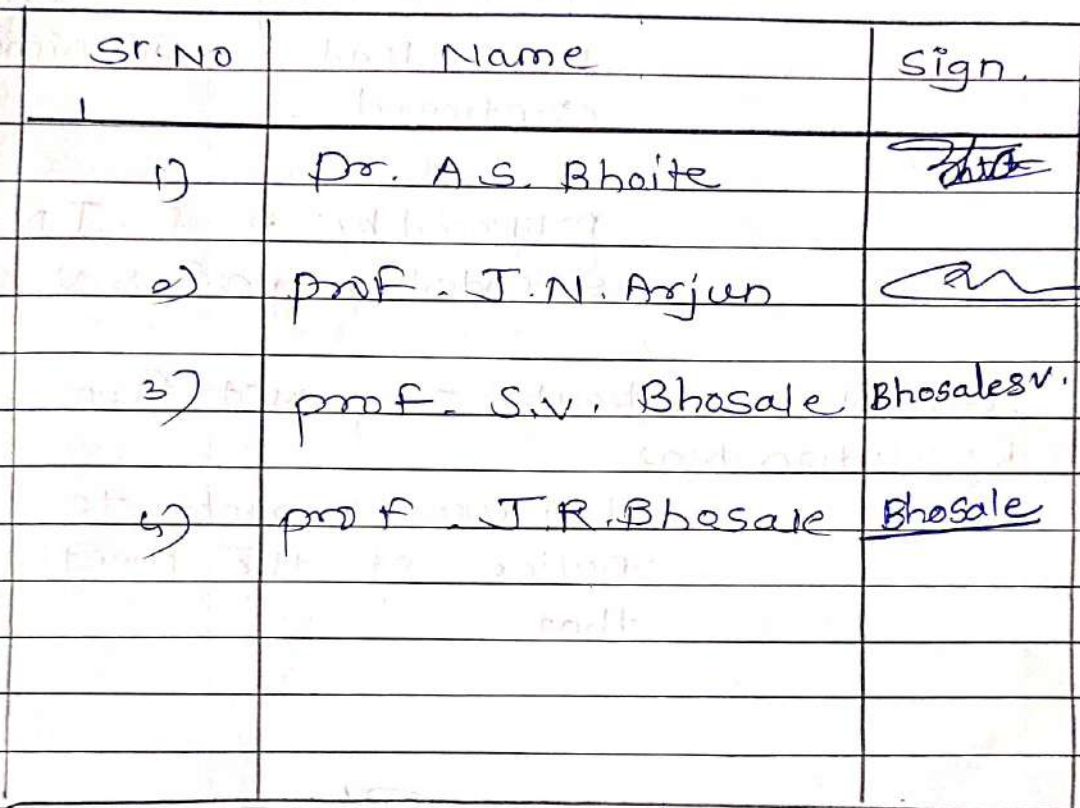 Sr. No Name Sign.
1
1) Dr. A.S. Bhoite
2) prof. J.N. Arjun
3) prof. S.V. Bhosale Bhosalesv.
4) prof. J.R. Bhosale Bhosale